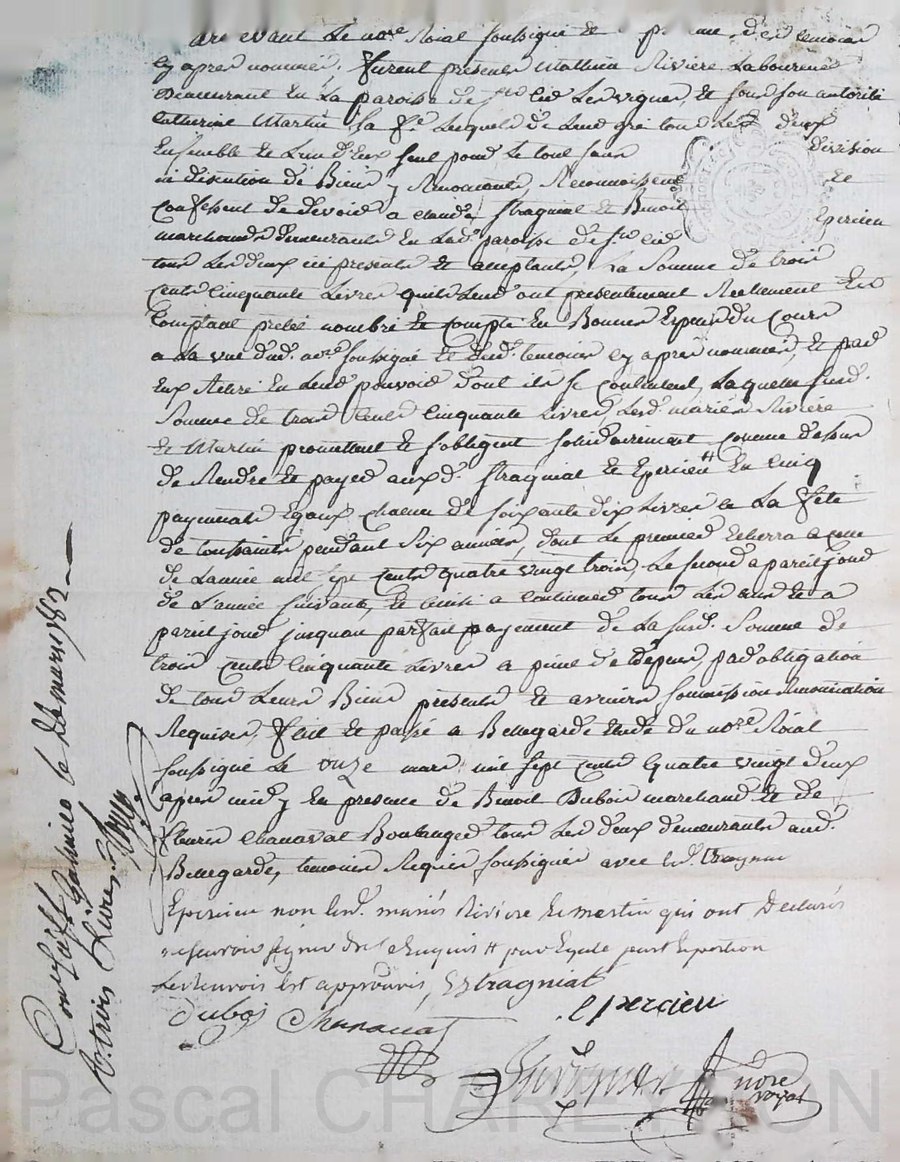 Par devant Le nore Roial soussigné et en presence des temoins
cy apres nommés, furent presents Mathieu Rivière Laboureur
Demeurant En La paroisse de st Cir Les vignes, et sous son autorité
Catherine Martin sa fe. Lesquels de Leur gré tous Les deux
Ensemble et L'un d'Eux seul pour Le tout sans division
ni discution de Biens y Renonçants, Reconnoissent et
Confessent de devoir a Claude Stragniat et Benoit Epercieu
marchands demeurants En Lad. paroisse de st Cir
tous Les deux ici presents et acceptants, La Somme de trois
Cents Cinquante Livres qu'ils Leur ont presentement Reellement En
Comptant preté nombré et compté En Bonnes Especes du Cours
a La vue dud. nore soussigné et desd. temoins cy apres nommés, et par
Eux Retiré En Leur pouvoir dont ils se Contentent, Laquelle susd.
Somme de trois Cents Cinquante Livres Lesd. mariés Rivière
et Martin promettent et s'obligent solidairement comme dessus
de Rendre et payer auxd. Stragniat et Epercieu # En Cinq
payements Egaux chacun de soixante dix Livres a La fete
de toussaints pendant six années, dont Le premier Echerra a celle
de L'année mil sept Cents quatre vingt trois, Le second a pareil jour
de L'année suivante, et ainsi a Continuer tous Les ans et a
pareil jour jusquau parfait payement de La susd. Somme de
trois Cents Cinquante Livres a peine de depens, par obligation
de tous Leurs Biens presents et avenirs soumission Renonciation
Requises, fait et passé a Bellegarde Etude du nore Roial
soussigné Le onze mars mil sept Cents quatre vingt deux
apres midy En presence de Benoit Dubois marchand et de
Chanavat Boulanger tous Les deux demeurants aud.
Bellegarde, temoins Requis soussignés avec Lesd. Stragniat
Epercieu non Lesd. mariés Rivière et Martin qui ont Declarés
ne sçavoir signer de ce Enquis # pour Egale part Eportion
Les Renvois Est approuvés, Estragniat
Dubois Chanavat
epercieu
nore
royal
Conlé a St Galmier le 23 mars 1782
R. trois Livres
Pascal CHAREYRON